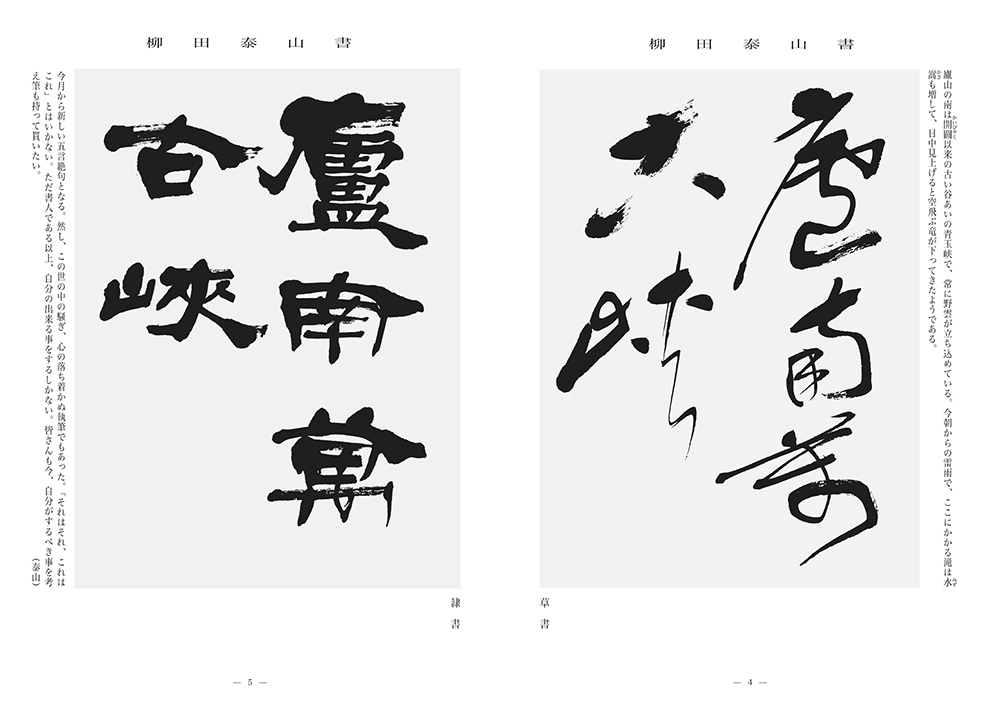 柳田泰山書
廬山の南は開闢以来の古い谷あいの青玉峡で、常に野雲が立ち込めている。今朝からの雷雨で、ここにかかる滝は水
かいびゃく
みず
嵩も増して、日中見上げると空飛ぶ竜が下ってきたようである。
かさ
廬南萬
古峡
草書
― 4 ―
柳田泰山書
廬南萬
古峽
隷書
今月から新しい五言絶句となる。然し、この世の中の騒ぎ、心の落ち着かぬ執筆でもあった。「それはそれ、これは
これ」とはいかない。ただ書人である以上、自分の出来る事をするしかない。皆さんも今、自分がするべき事を考
え筆も持って貰いたい。
（泰山）
― 5 ―